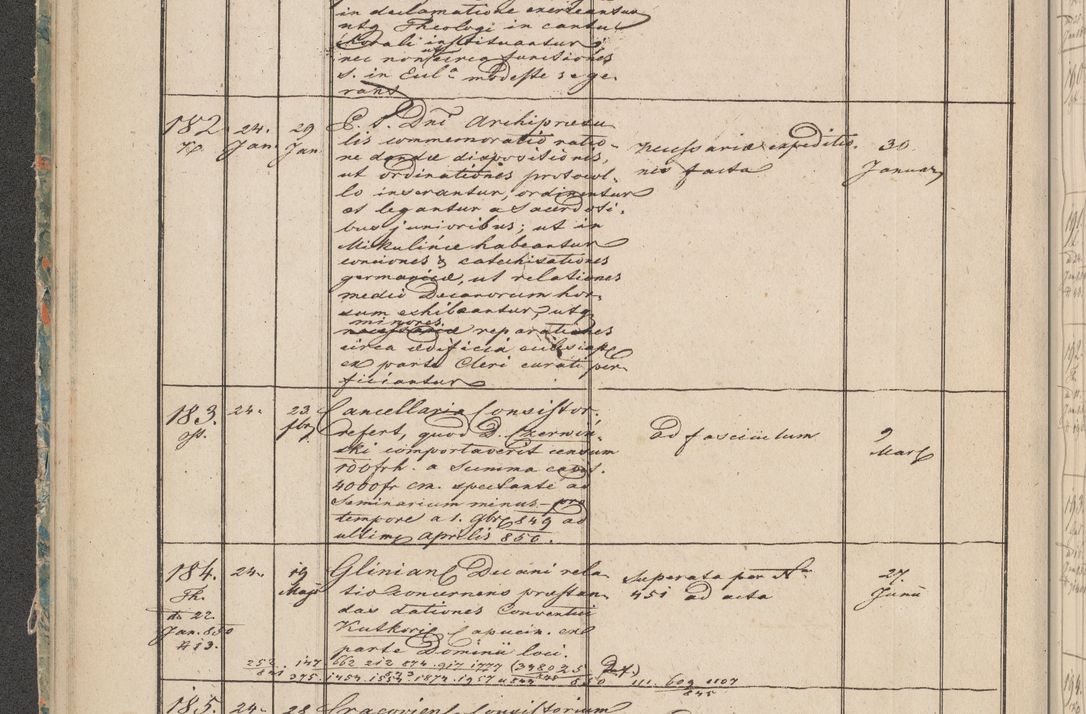 in declamatione exerceantur
utq Theologi in cantu
chorali instituantur
nec non ut circa functiones
s. in Eccl.a modeste se ge-
rans
182. 24. 29 E. S. Dni Archipraesu-
Jan. Jan
lis commemoratio ratio-
ne dandae dispositionis,
ut ordinationes protocol-
lo inserantur, ordinentur
et legantur a Sacerdoti-
bus junioribus; ut in
Mikulińce habeantur
conciones & catechisationes
germanicae, ut relationes
medii Decanorum hor-
sum exhibeantur, utq
minores
necessariae reparationes
circa aedificia ecclesiae
ex parte Cleri curati per-
ficiantur
Necessariae expeditio-
nes factae
30
Januar
183. 24. 23 Cancellaria Consistor.
fbr
refert, quod D. Czerwiń-
ski comportaverit censum
100 frh. a Summa
4000 fr cm. spectante ad
Seminarium minus pro
tempore a 1. 9br 849 ad
ultim Aprilis 850.
ad fasciculum
9
Mart
184. 24. 19 Glinian Decani rela-
Th. Maji
tio concernens praestan-
das dationes Conventui
Kutkoric. Capucin. ex
parte Dominii loci.
dto 22.
Jan. 850
# 13.
Superata per Nr
451 ad acta
27.
Junii
252 147 662 212 874 917 1777
375 1454 1554 1874 1957
850 111 609 1107
845
185. 24. 28 Cracovien Consistorium